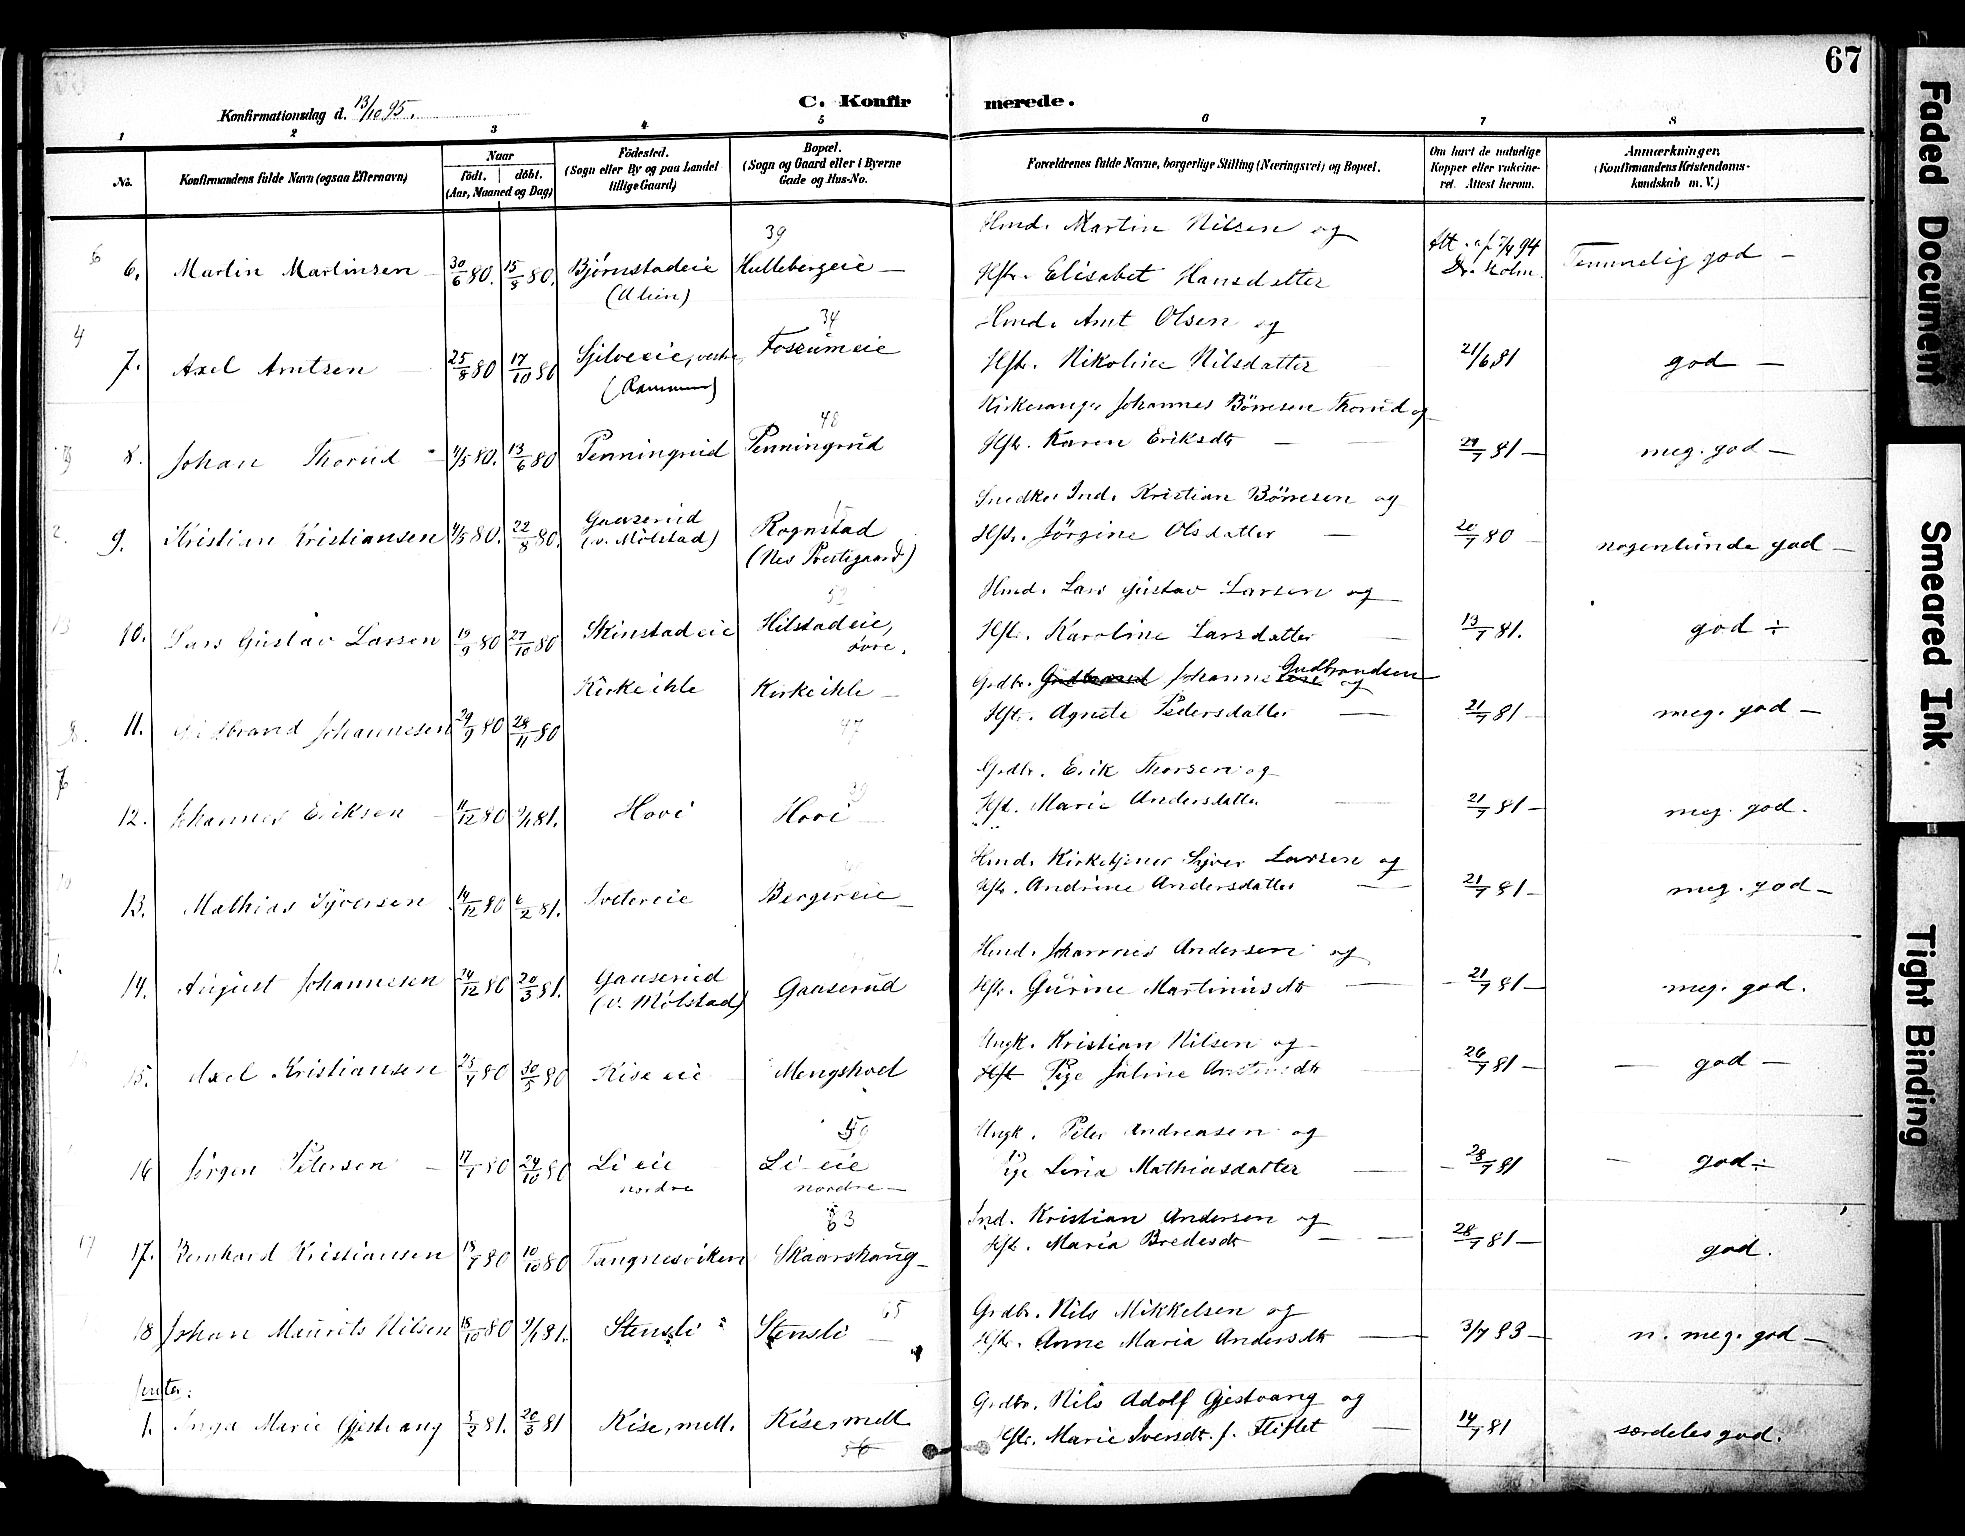 67
Konfirmationsdag d. 13/10 95.
C. Konfirmerede.
1 2 3 4 5 6 7 8
No.
Konfirmandens fulde Navn (ogsaa Efternavn)
Naar
født. døbt.
(Aar, Maaned og Dag)
Fødested.
(Sogn eller By og paa Landet
tillige Gaard)
Bopæl.
(Sogn og Gaard eller i Byerne
Gade og Hus-No.
Forældrenes fulde Navne, borgerlige Stilling (Næringsvei) og Bopæl.
Om havt de naturlige
Kopper eller vakcine-
ret. Attest herom.
Anmærkninger,
(Konfirmandens Kristendoms-
kundskab m. V.)
39
6. Martin Martinsen 30/6 80. 15/8 80. Bjørnstadeie Hullebergeie — Hmd. Martin Nilsen og
Hstr. Elisabet Hansdatter Dr. Holm. Temmelig god —
34
7. Axel Amtsen 25/8 80 17/10 80 Fossumeie Hmd. Amt Olsen og
Hstr. Nikoline Nilsdatter 21/6 81 god —
48
8. Johan Thorud 80. 13/6 80 Penningrud Penningrud Kirkesanger Johannes Börresen Thorud og
Hstr. Karen Eriksdtr — 81 — meg. god —
9. Kristian Kristiansen 80. 22/8 80. Gaaserud
(v. Mølstad) Rognstad
(Nes Prestegaard) Kristian Börresen og
Hstr. Jörgine Olsdatter — 80 nogenlunde god —
10. Lars Gustav Larsen 19/9 80 27/10 80 Skinstadeie Hilstadeie,
øvre. Hmd. Lars Gustav Larsen og
Hstr. Karoline Larsdatter 13/7 81. god ÷
11. Gudbrand Johannesen 29/9 80 28/11 80 Kirkeihle Kirkeihle — Grdbr. Johannes Gudbrandsen og
47 Hstr. Agnete Pedersdatter — 21/7 81 — meg. god —
12. Johannes Eriksen 11/12 80 81. Hovi Hovi Grdbr. Erik Thorsen og
Hst. Marie Andersdatter 21/7 81 — meg. god.
13. Mathias Syversen 14/12 80 6/2 81. Bergereie — Hmd. Kirketjener Syver Larsen og
Hstr. Andrine Andersdatter — 21/7 81 — meg. god —
14. August Johannesen 24/12 80 20/3 81. Gaaserud
(v. Mølstad) Gaaserud Hmd. Johannes Andersen og
Hstr. Gurine Martinusdtr — 21/7 81 — meg. god.
15. Axel Kristiansen 80 30/5 80 Kise eie Mengshoel Ungk. Kristian Nilsen og
Pige 26/7 81 — god —
16 Jörgen Petersen 80 24/10 80 Li eie
nordre Li eie
nordre — Ungk. Peter Andreasen og
Pige Lina Mathiasdatter — 28/7 81 — god ÷
63
17. Bernhard Kristiansen 80 10/10 80 Tangnesviken Skaarshaug — Ind. Kristian Andersen og
Hstr. Maria Bredesdtr — 28/7 81 — god.
65
18 Johan Maurits Nilsen 18/10 80 81. Stensli Stensli — Grdbr. Nils Mikkelsen og
Hstr. Anne Maria Andersdtr — 3/7 83 — n. meg. god —
Jenter:
1. Inga Marie Gjestvang 5/2 81. 20/3 81 Kise, mell. Kise, mell. Grdbr. Nils Adolf Gjestvang og
56 Hstr. Marie Iversdtr. f. Fliflet 14/7 81 særdeles god.
Faded Document
Smeared Ink.
Tight Binding